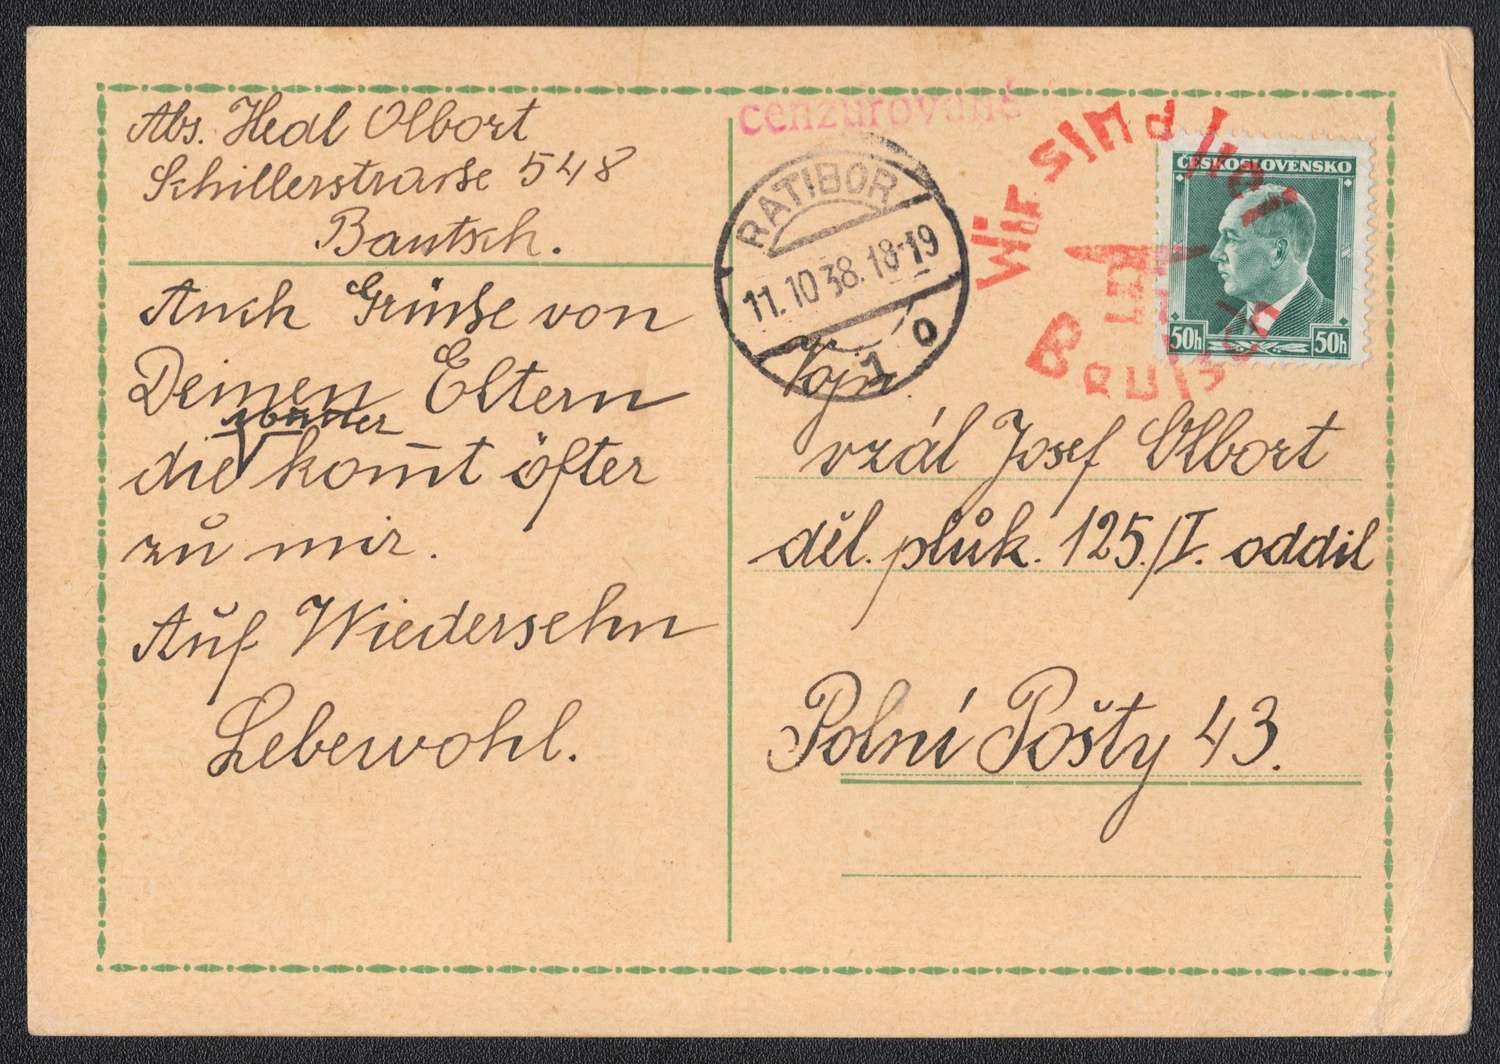 Abs. Hedl Olbort
Schillerstraße 548
Bautsch.
Auch Grüße von
Deinen Eltern
die komt öfter
zu mir.
Auf Wiedersehn
Lebewohl.
cenzurováné
RATIBOR
11.10.38.18-19
1 o
Wir sind frei
Bautsch
ČESKOSLOVENSKO
50h 50h
Vojn
vzál Josef Olbort
děl. plůk. 125./I. oddil
Polní Pošty 43.